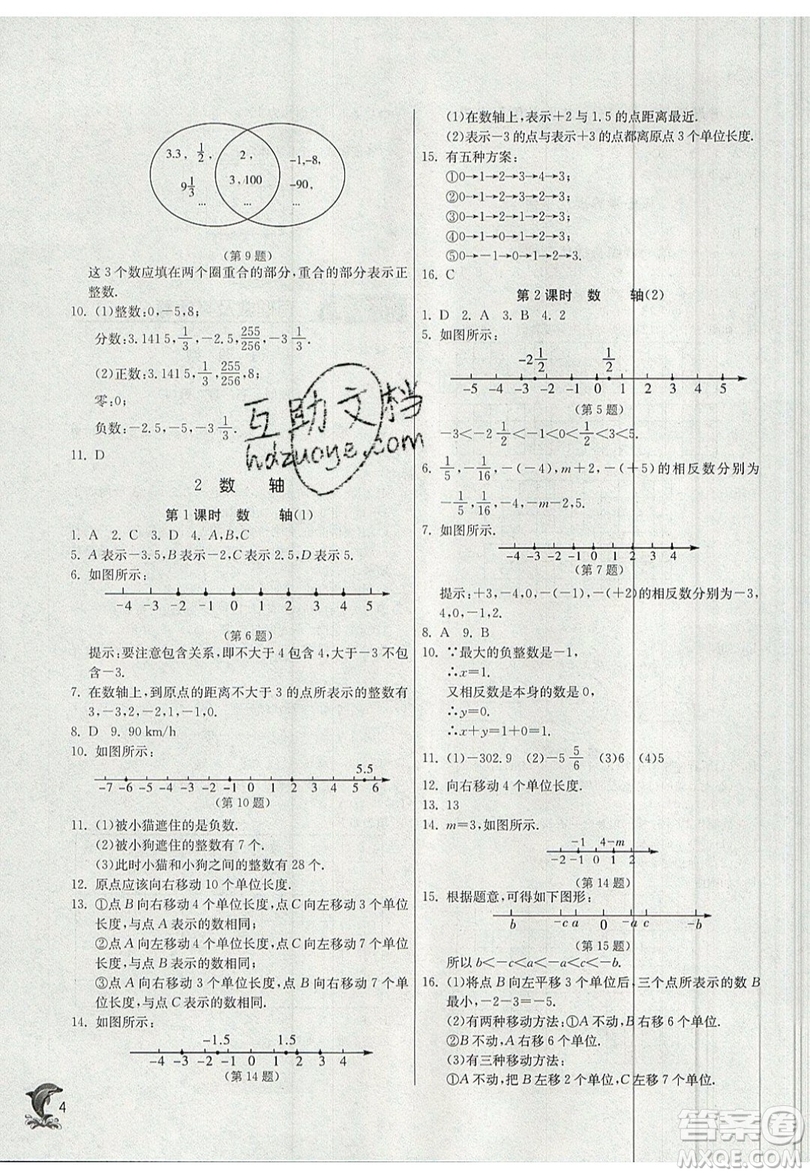 3.3, 1/2 2, -1,-8,
9 1/3 3,100 -90,
... ... ...
(第9题)
这3个数应填在两个圈重合的部分,重合的部分表示正
整数.
10. (1)整数:0,-5,8;
分数:3.1415,1/3,-2.5,255/256,-3 1/3.
(2)正数:3.1415,1/3,255/256,8;
零:0;
负数:-2.5,-5,-3 1/3.
11. D
2 数 轴
第1课时 数 轴(1)
1. A 2. C 3. D 4. A,B,C
5. A表示-3.5,B表示-2,C表示2.5,D表示5.
6. 如图所示:
-4 -3 -2 -1 0 1 2 3 4 5
(第6题)
提示:要注意包含关系,即不大于4包含4,大于-3不包
含-3.
7. 在数轴上,到原点的距离不大于3的点所表示的整数有
3,-3,-2,2,-1,1,0.
8. D 9. 90 km/h
10. 如图所示:
5.5
-7 -6 -5 -4 -3 -2 -1 0 1 2 3 4 5 6
(第10题)
11. (1)被小猫遮住的是负数.
(2)被小狗遮住的整数有7个.
(3)此时小猫和小狗之间的整数有28个.
12. 原点应该向右移动10个单位长度.
13. ①点B向左移动4个单位长度,点C向左移动3个单位
长度,与点A表示的数相同;
②点A向右移动4个单位长度,点C向左移动7个单位
长度,与点B表示的数相同;
③点A向右移动3个单位长度,点B向右移动7个单位
长度,与点C表示的数相同.
14. 如图所示:
-1.5 1.5
-4 -3 -2 -1 0 1 2 3 4
(第14题)
4
(1)在数轴上,表示+2与1.5的点距离最近.
(2)表示-3的点与表示+3的点都离原点3个单位长度.
15. 有五种方案:
①0→1→2→3→4→3;
②0→1→2→3→2→3;
③0→1→2→1→2→3;
④0→1→0→1→2→3;
⑤0→-1→0→1→2→3.
16. C
第2课时 数 轴(2)
1. D 2. A 3. B 4. 2
5. 如图所示:
-2 1/2 1/2
-5 -4 -3 -2 -1 0 1 2 3 4 5
(第5题)
6. -1/5,-1/16,-1/6,-m+2,-5,2的相反数分别为
7. 如图所示.
-4 -3 -2 -1 0 1 2 3 4
(第7题)
提示:+3,-4,0,-1,-(+2)的相反数分别为-3,
4,0,-1,2.
8. A 9. B
10. ∵最大的负整数是-1,
∴x=1.
又相反数是本身的数是0,
∴y=0.
∴x+y=1.
11. (1)-302.9 (2)-5 5/6 (3)6 (4)5
12. 向右移动4个单位长度.
13. 13
14. m=3,如图所示.
-1 4-m
-4 -3 -2 -1 0 1 2
(第14题)
15. 根据题意,可得如下图形:
b -c a 0 -a c -b
(第15题)
所以b<-c<a<-a<c<-b.
16. (1)将点B向左平移3个单位后,三个点所表示的数B
最小,-2-3=-5.
(2)有两种移动方法:①A不动,B右移6个单位.
②B不动,A左移6个单位.
(3)有三种移动方法:
①A不动,把B左移2个单位,C左移7个单位.
互助文档
hdzuoye.com
答案圈
MXQE.COM